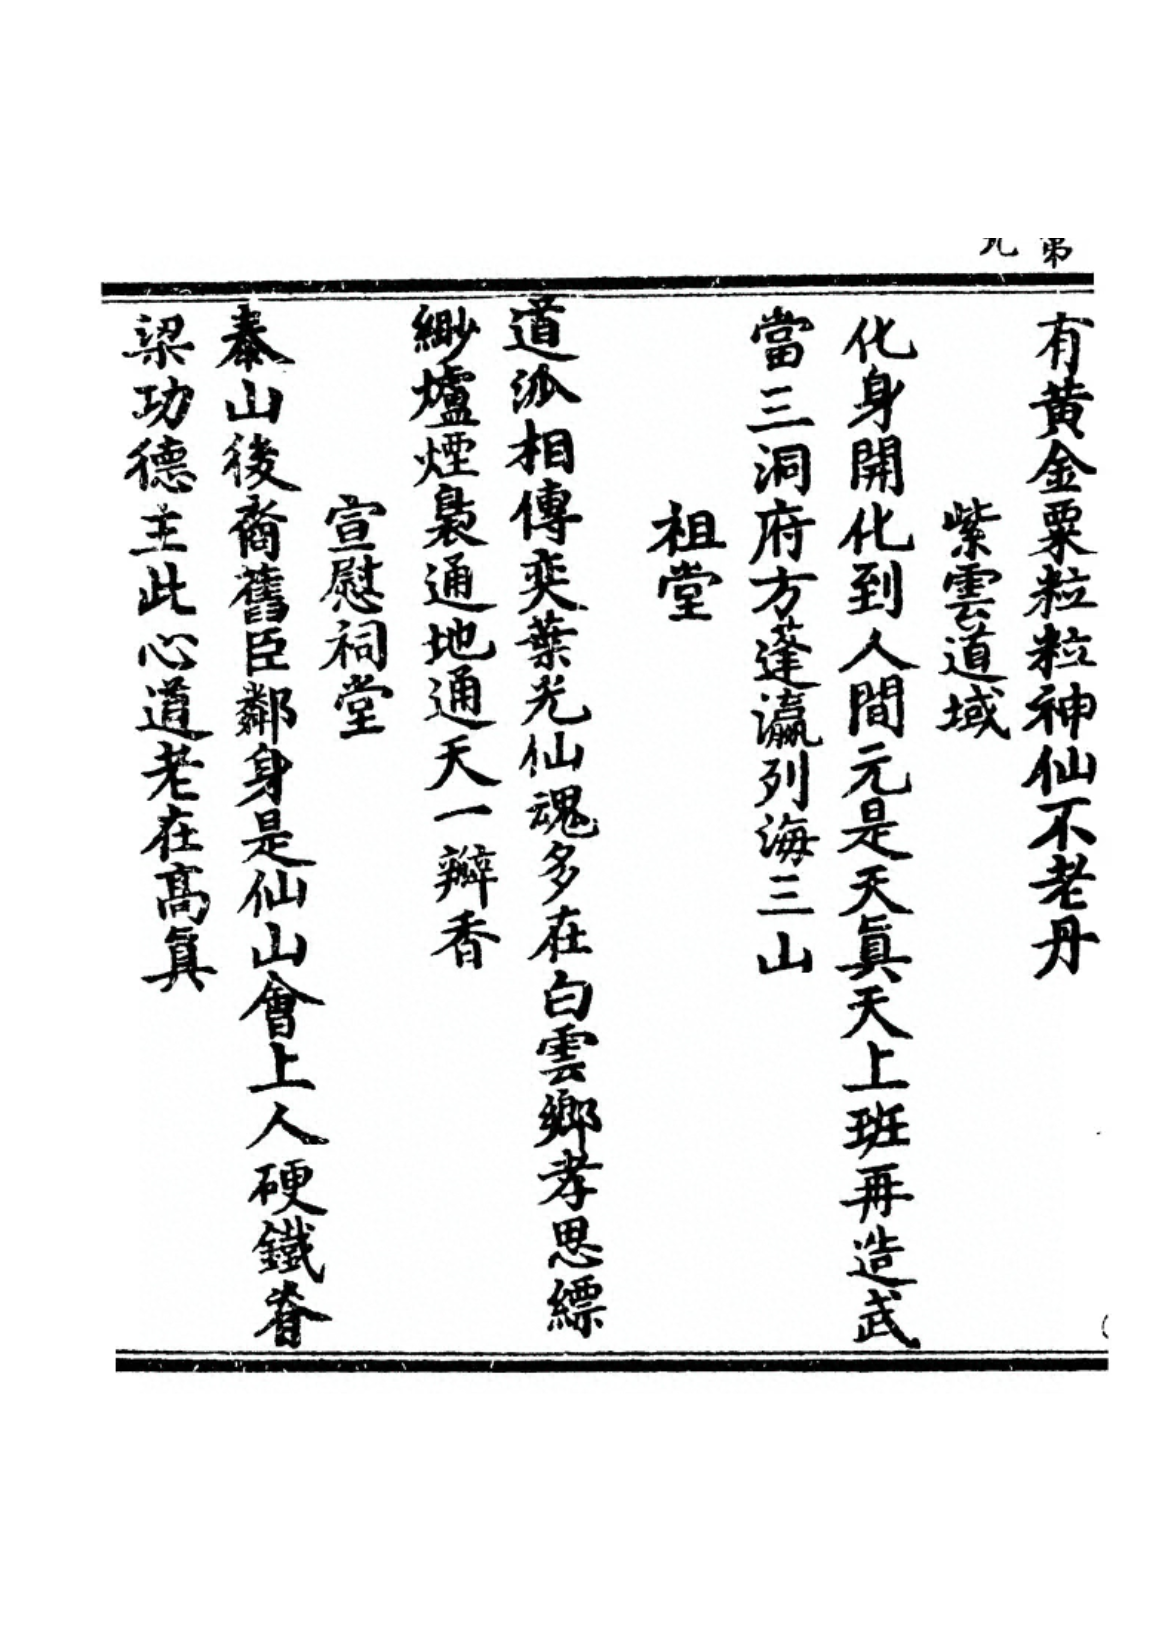 第
有黄金粟粒粒神仙不老丹
紫雲道域
化身開化到人間元是天眞天上班再造武
當三洞府方蓬瀛列海三山
祖堂
道派相傳奕葉光仙魂多在白雲鄉孝思縹
緲爐煙裊通地通天一瓣香
宣慰祠堂
泰山後裔舊臣鄰身是仙山會上人硬鐵脊
梁功德主此心道老在髙眞